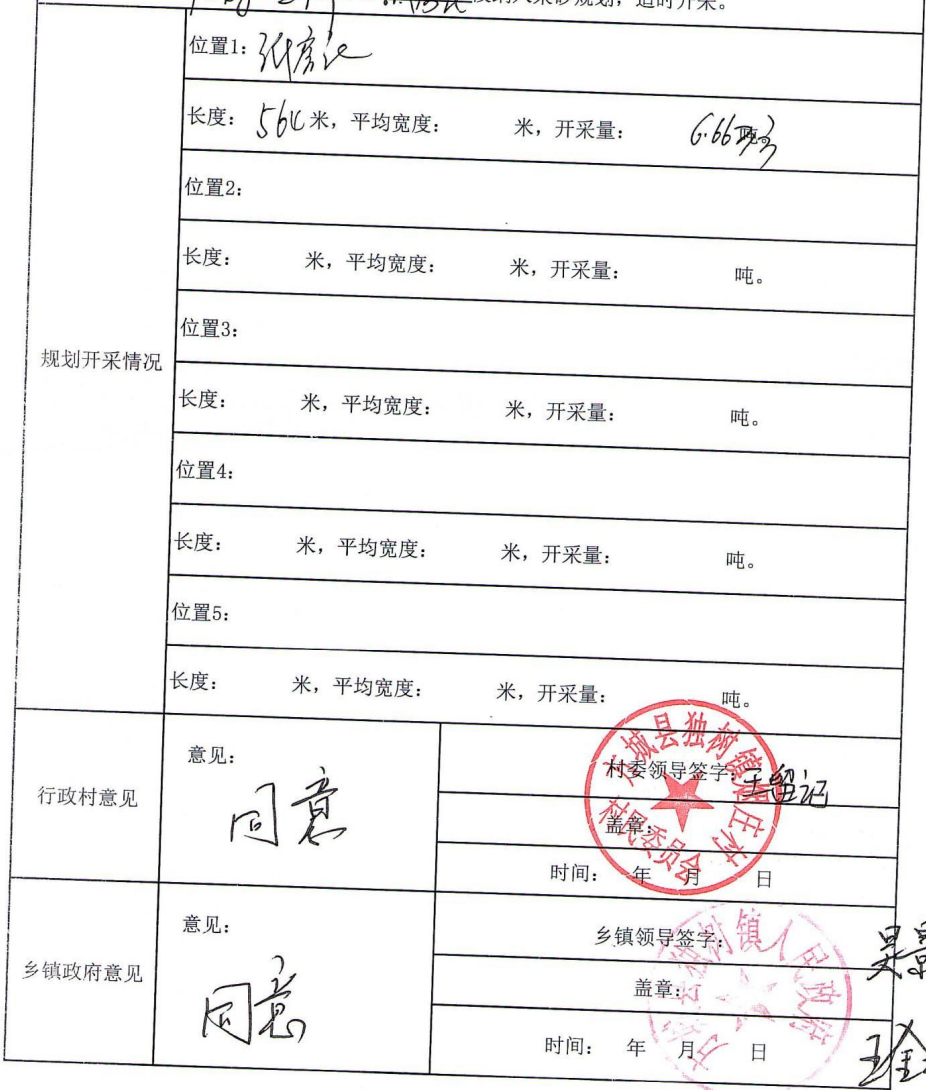 段纳入采砂规划，适时开采。
规划开采情况
位置1：
长度： 米，平均宽度： 米，开采量： 6.66
位置2：
长度： 米，平均宽度： 米，开采量： 吨。
位置3：
长度： 米，平均宽度： 米，开采量： 吨。
位置4：
长度： 米，平均宽度： 米，开采量： 吨。
位置5：
长度： 米，平均宽度： 米，开采量： 吨。
行政村意见
意见：
同意
村委领导签字：王留记
盖章：
时间： 年 月 日
方城县独树镇 庄村
村民委员会
乡镇政府意见
意见：
同意
乡镇领导签字： 吴
盖章：
时间： 年 月 日
方城县独树镇人民政府
王金